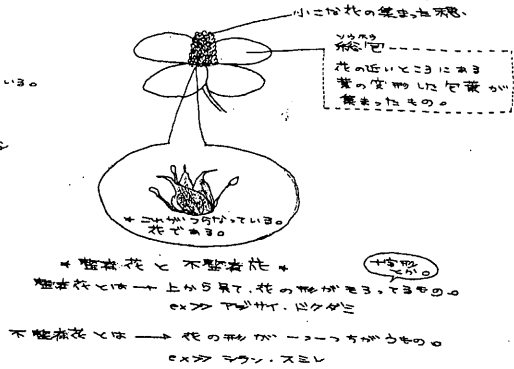 小さな花の集まった穂。
ソウホウ
総包
花の近いところにある
葉の変形した包葉が
集まったもの。
いる。
* これがつらなっている。
花である。
* 整斉花と不整斉花 *
十字形
とか。
整斉花とは→ 上から見て、花の形がそろってるもの。
ex≫ アジサイ・ドクダミ
不整斉花とは → 花の形が一つ一つちがうもの。
ex≫ シラン・スミレ